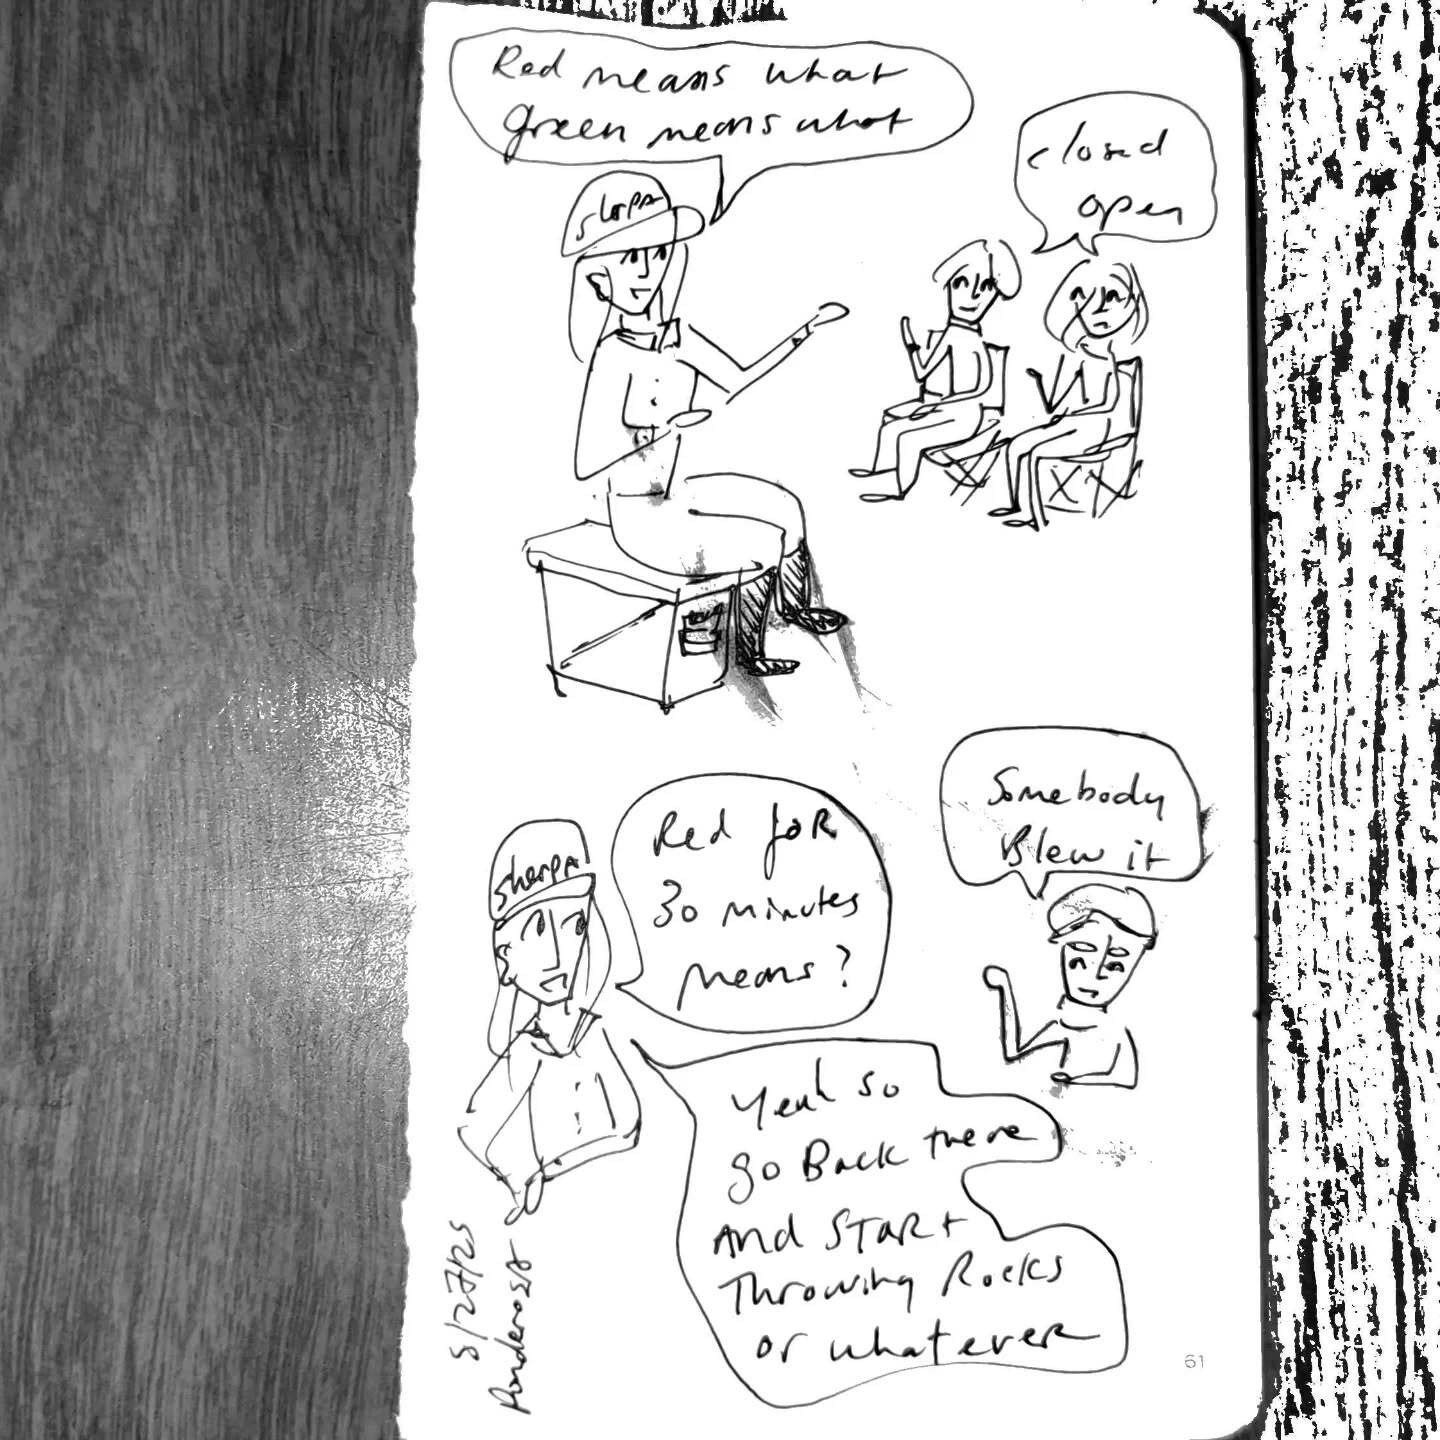 Red means what
green means what
closed
open
sherpa
Red for
30 minutes
means?
Somebody
Blew it
sherpa
Yeah so
go Back there
And START
Throwing Rocks
or whatever
5/27/25
Ponderosa
61